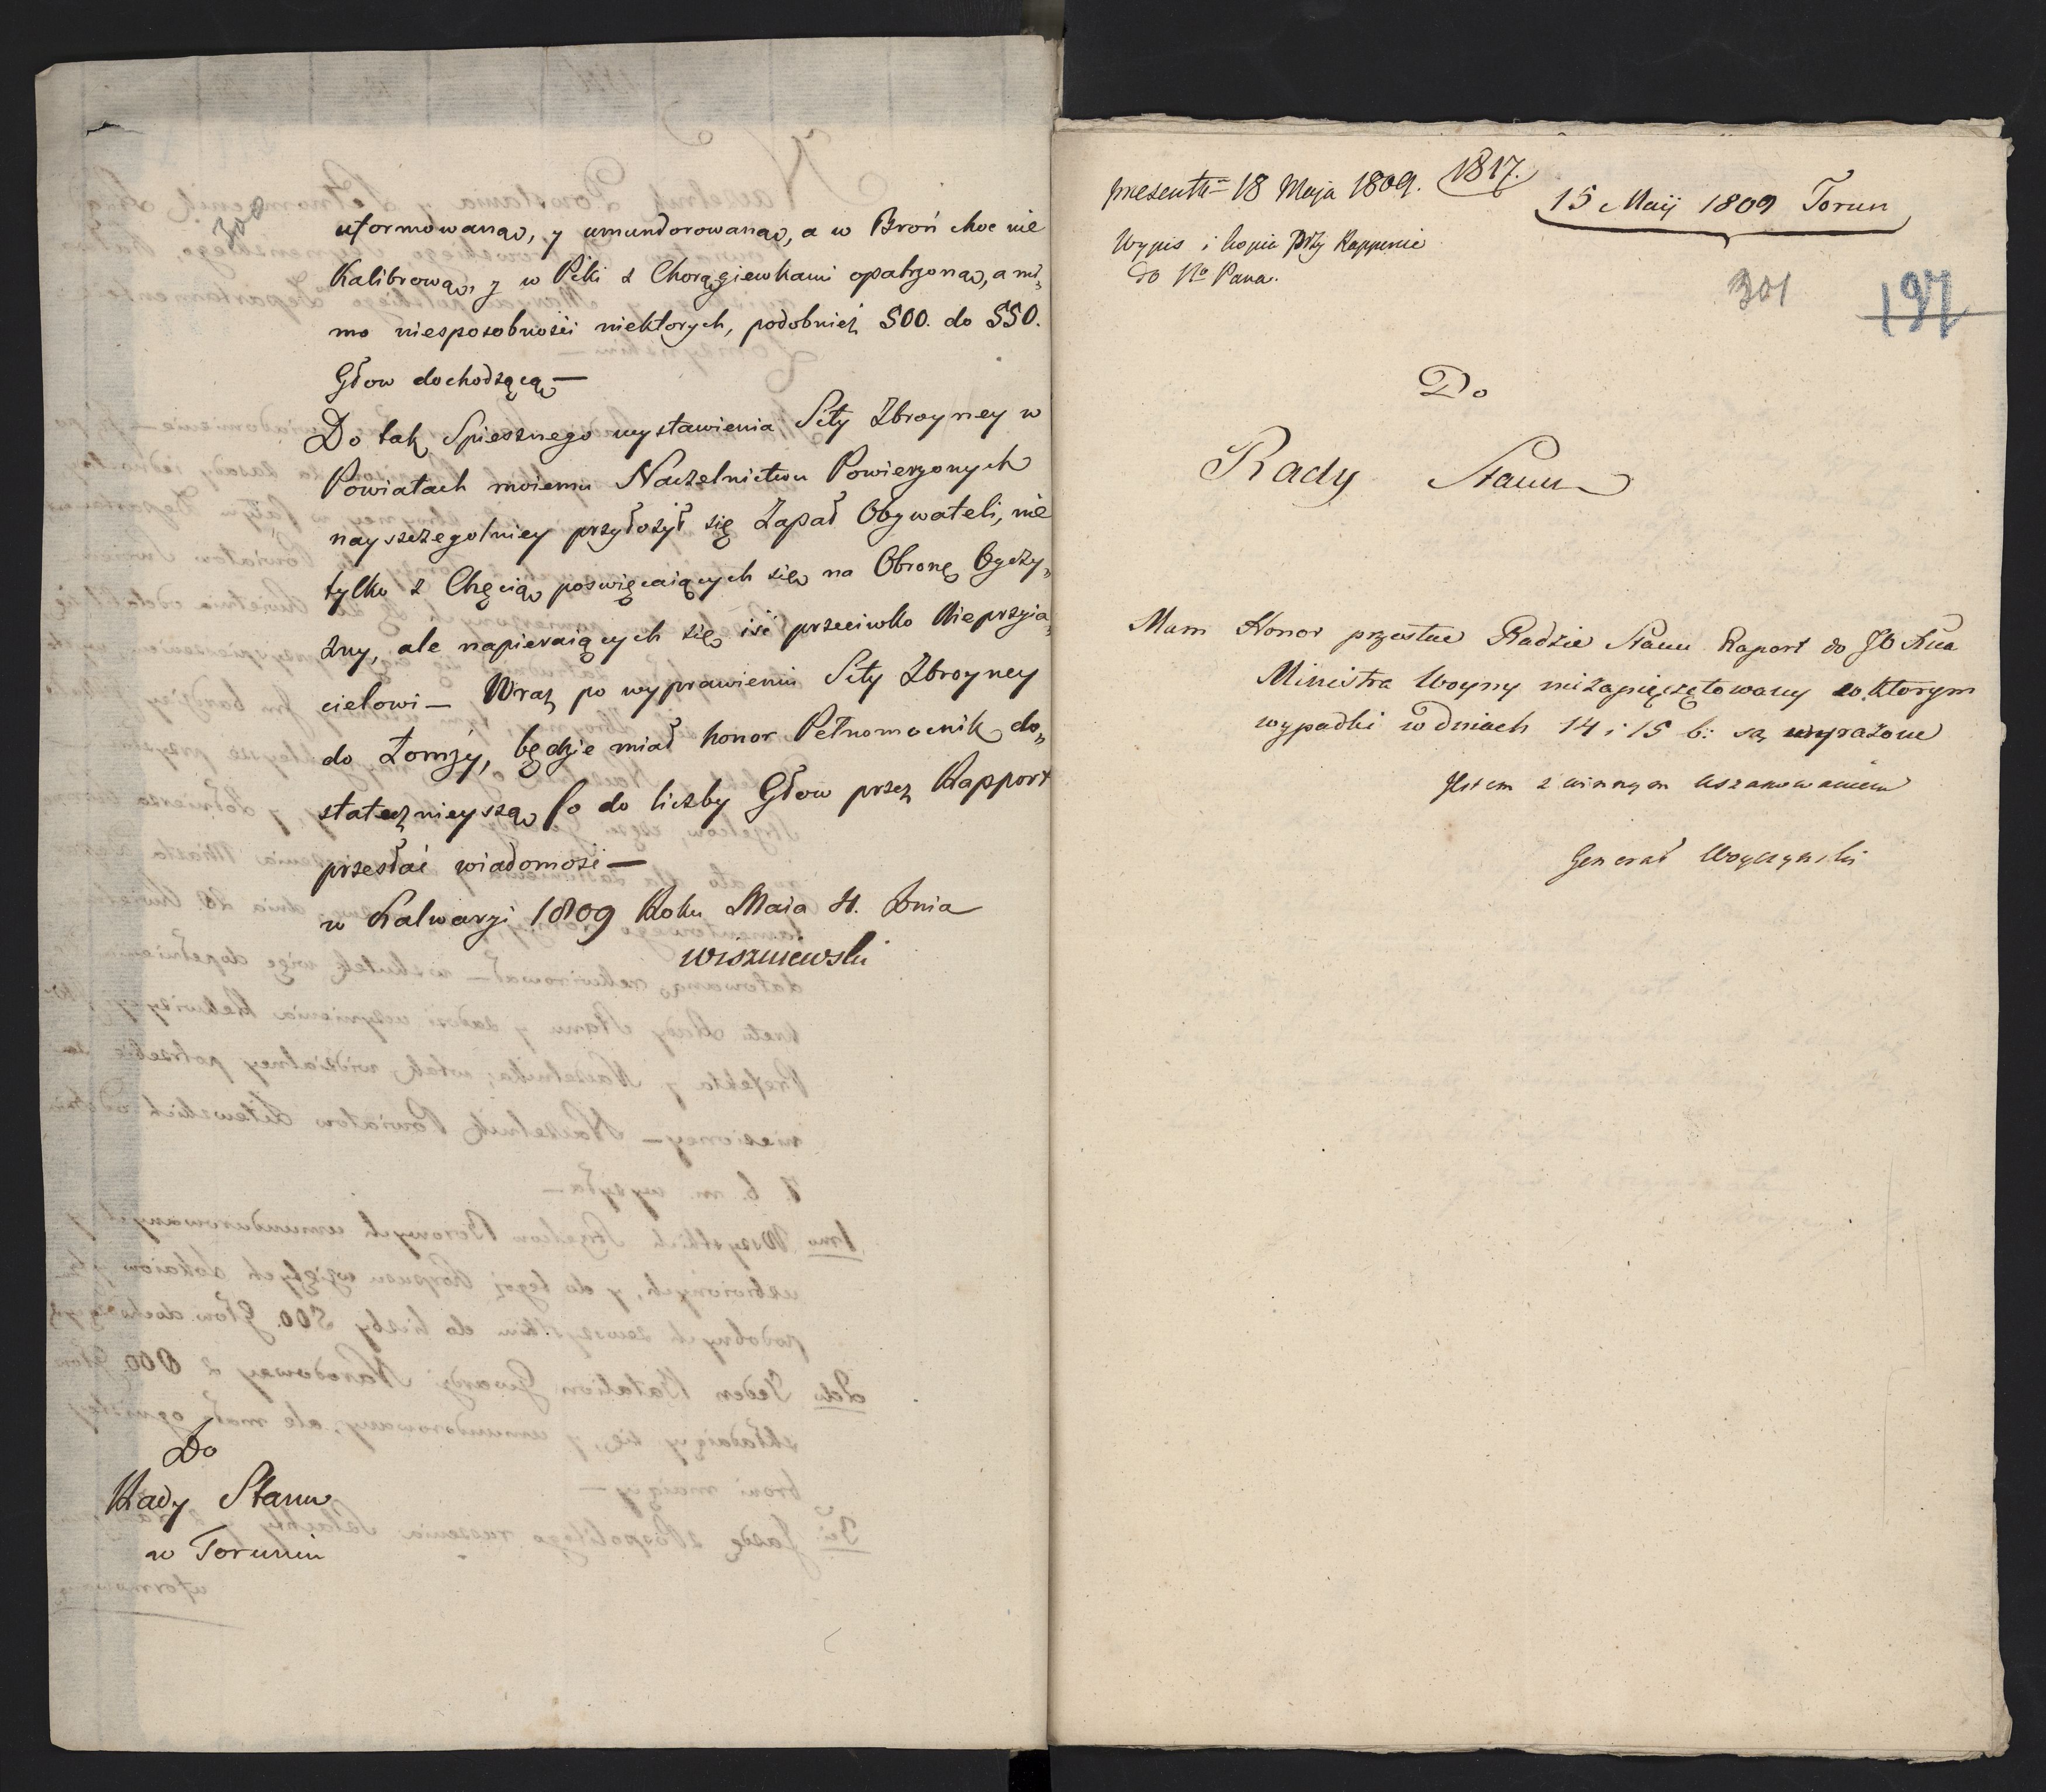 300
uformowaną, y umundorowaną, a w Broń choc nie
Kalibrową, y w Piki z Chorągiewkami opatrzoną, a mi„
mo niesposobności niektorych, podobnież 500. do 550.
Głow dochodzącą —
Do tak Spiesznego wystawienia Siły Zbroyney w
Powiatach moiemu Naczelnictwu Powierzonych
nayszczegolniey przyłożył się Zapał Obywateli, nie
tylko z Chęcią poswięcaiących się na Obronę Oyczy„
zny, ale napieraiących się iść przeciwko Nieprzyia„
cielowi — Wraz po wyprawieniu Siły Zbroyney
do Łomży, będzie miał honor Pełnomocnik do„
statecznieyszą co do liczby Głow przez Rapport
przesłać wiadomość —
w Kalwaryi 1809 Roku Maia Dnia
Wiszniewski
Do
Rady Stanu
w Toruniu
presentt 18 Maja 1809. 1817.
15 Maij 1809 Torun
Wypis i kopia przy Rapporcie
do Na Pana.
301
197
Do
Rady Stanu
Mam Honor przesłac Radzie Stanu Raport do JO
Ministra Woyny niezapieczętowany w ktorym
wypadki w dniach 14 i 15 b: są wyrażone
Jestem z winnym uszanowaniem
Generał Woyczyński